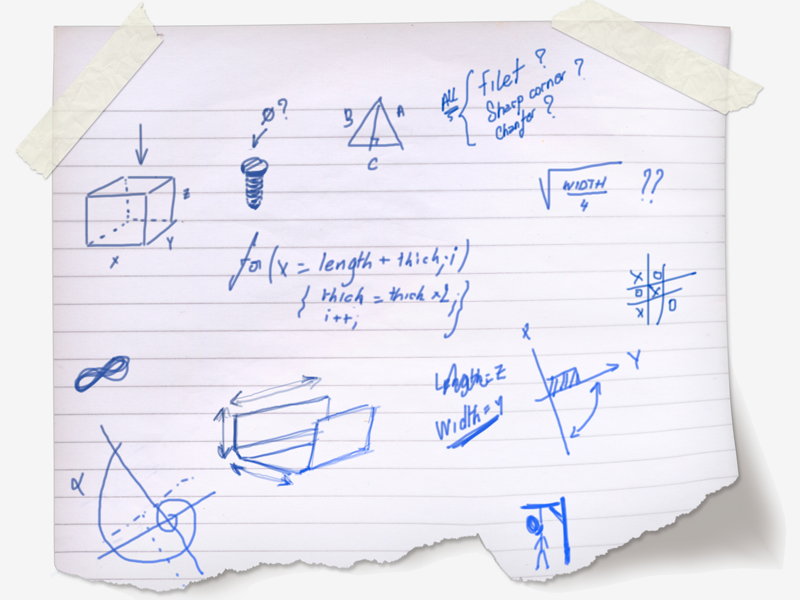 ALL
5
Filet ?
Sharp corner ?
Chanfer ?
Ø?
B
A
C
Z
Y
X
√WIDTH/4 ??
for(x = length + thick; i)
{ thick = thick x2;}
i++;
X O
O X
X O
X
Y
Length=Z
Width=Y
α